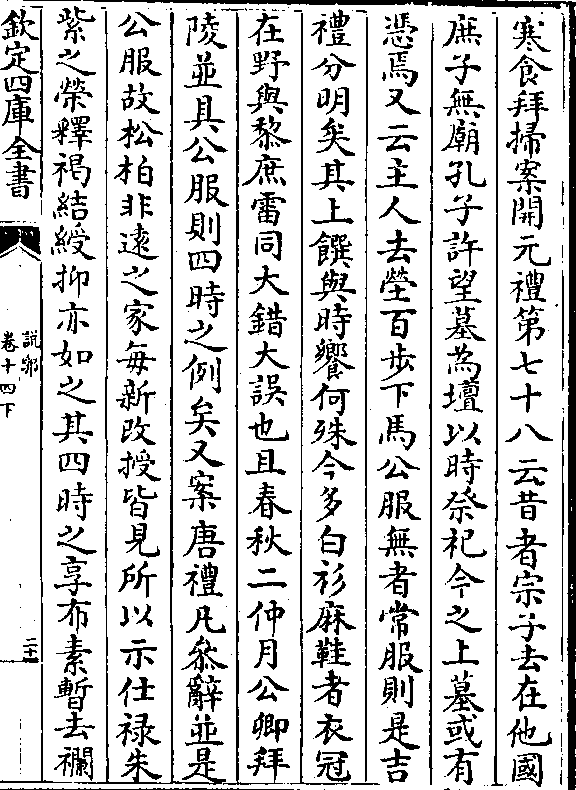 寒食拜掃案開元禮第七十八云昔者宗子去在他國
庶子無廟孔子許望墓為壇以時祭祀今之上墓或有
憑焉又云主人去塋百步下馬公服無者常服則是吉
禮分明矣其上饌與時饗何殊今多白衫麻鞋者衣冠
在野與黎庶雷同大錯大誤也且春秋二仲月公卿拜
陵並具公服則四時之例矣又案唐禮凡叅辭並是
公服故松柏非遠之家每新改授皆見所以示仕禄朱
紫之榮釋褐結綬抑亦如之其四時之享布素暫去襴
欽定四庫全書
說郛
卷十四下
二十